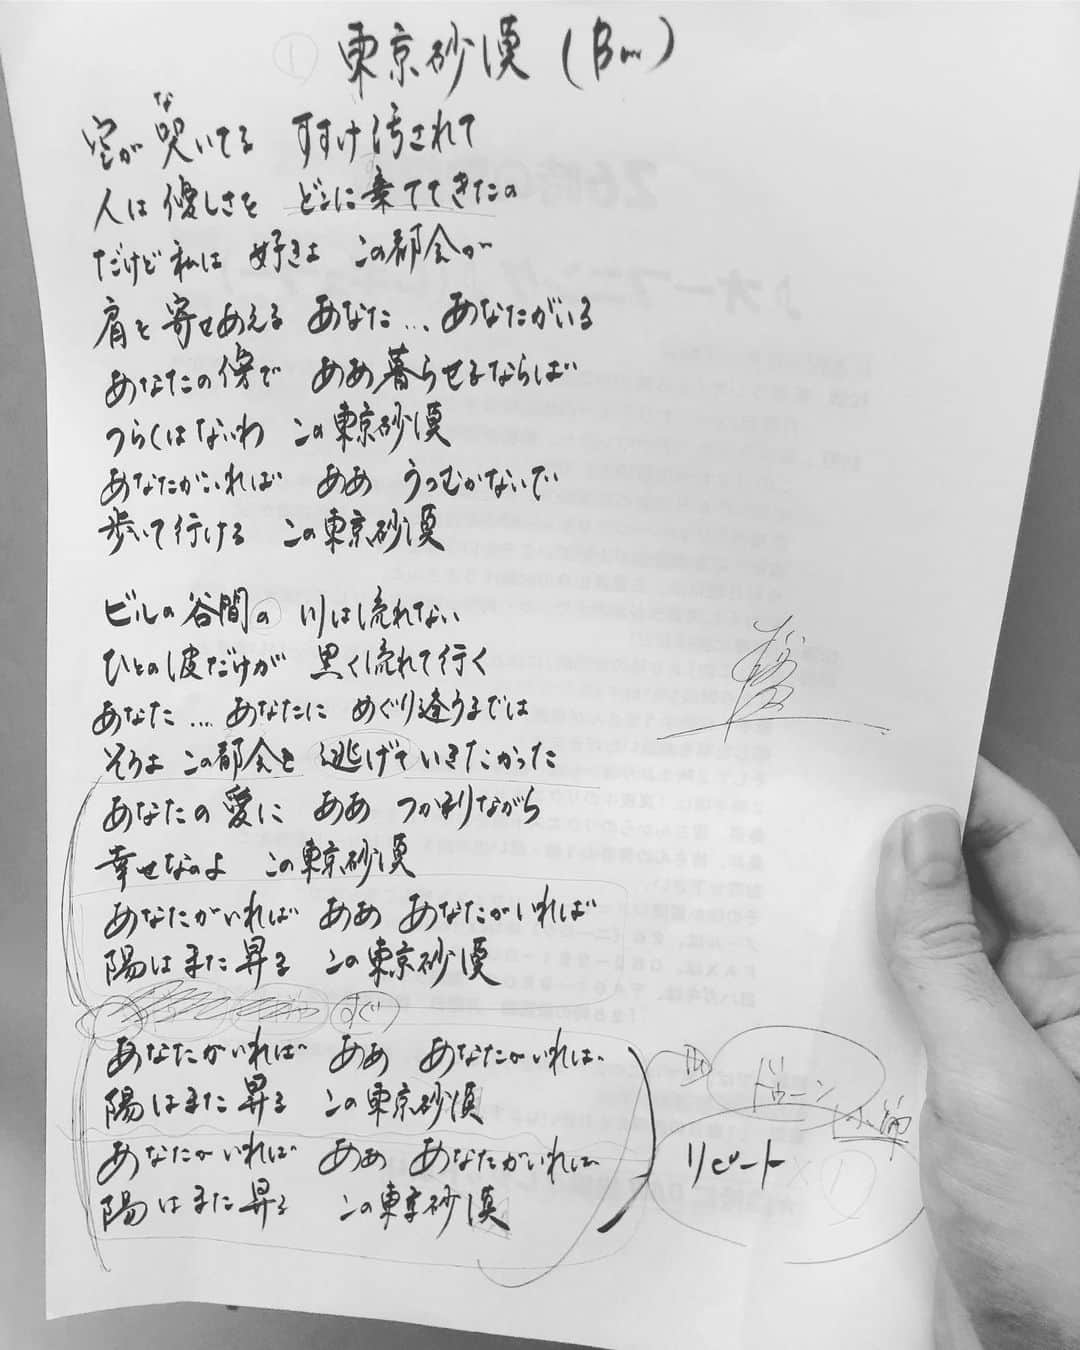 ① 東京砂漠 (Bm)
空が哭いてる すすけ汚されて
な
人は優しさを どこに棄ててきたの
だけど私は 好きよ この都会が
肩を寄せあえる あなた… あなたがいる
あなたの傍で ああ 暮らせるならば
つらくはないわ この東京砂漠
あなたがいれば ああ うつむかないで
歩いて行ける この東京砂漠
ビルの谷間の 川は流れない
ひとの波だけが 黒く流れて行く
あなた… あなたに めぐり逢うまでは
そうよ この都会を 逃げていきたかった
あなたの愛に ああ つかまりながら
幸せなのよ この東京砂漠
あなたがいれば ああ あなたがいれば
陽はまた昇る この東京砂漠
すぐ
あなたがいれば ああ あなたがいれば
陽はまた昇る この東京砂漠
あなたがいれば ああ あなたがいれば
陽はまた昇る この東京砂漠
リピート ×1